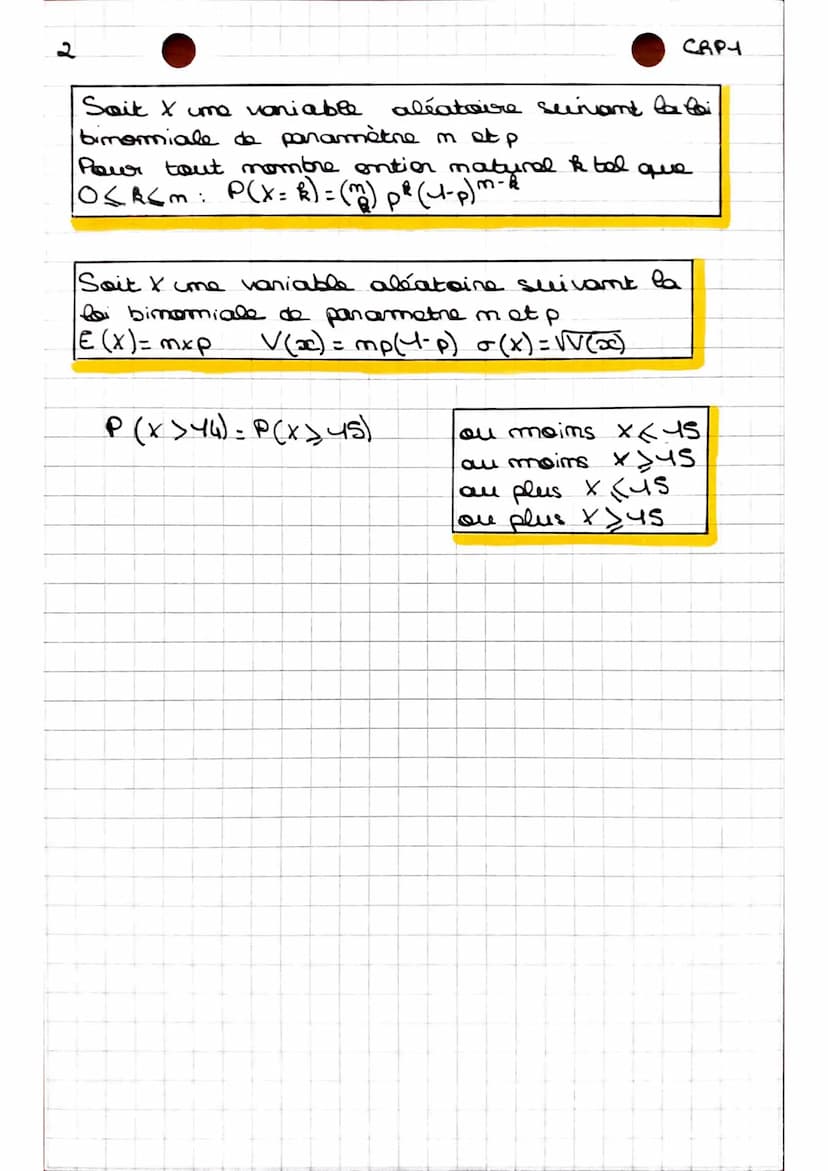 2
CRP1
Soit X une variable aléatoire suivant la loi
binomiale de paramètre n et p
Pour tout nombre entier naturel k tel que
0 ⩽ k ⩽ n : P(X = k) = (n k) p^k (1-p)^{n-k}
Soit X une variable aléatoire suivant la
loi binomiale de parametre n et p
E(X) = n×p V(x) = np(1-p) σ(X) = √V(x)
P(X > 14) = P(X ⩾ 15)
ou moins X ⩽ 15
au moins X ⩾ 15
au plus X ⩽ 15
ou plus X ⩾ 15